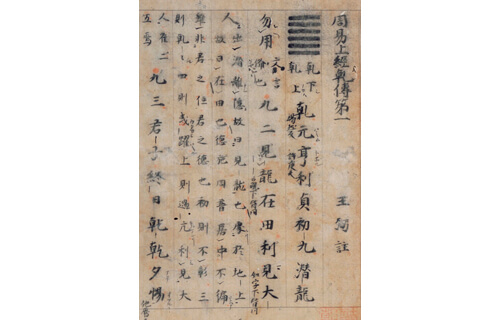 周易上經乾傳第一
王弼註
乾下
乾上
乾元亨利貞初九潛龍
勿用
文言
九二見龍在田利見大
人
出潛離隱故曰見龍也處於地上
故曰在田也德施周普居中不偏
雖非君之位君之德也初則不彰三
則乾〻四則或躍上則過亢利見大
人唯二
五焉
九三君子終日乾乾夕惕